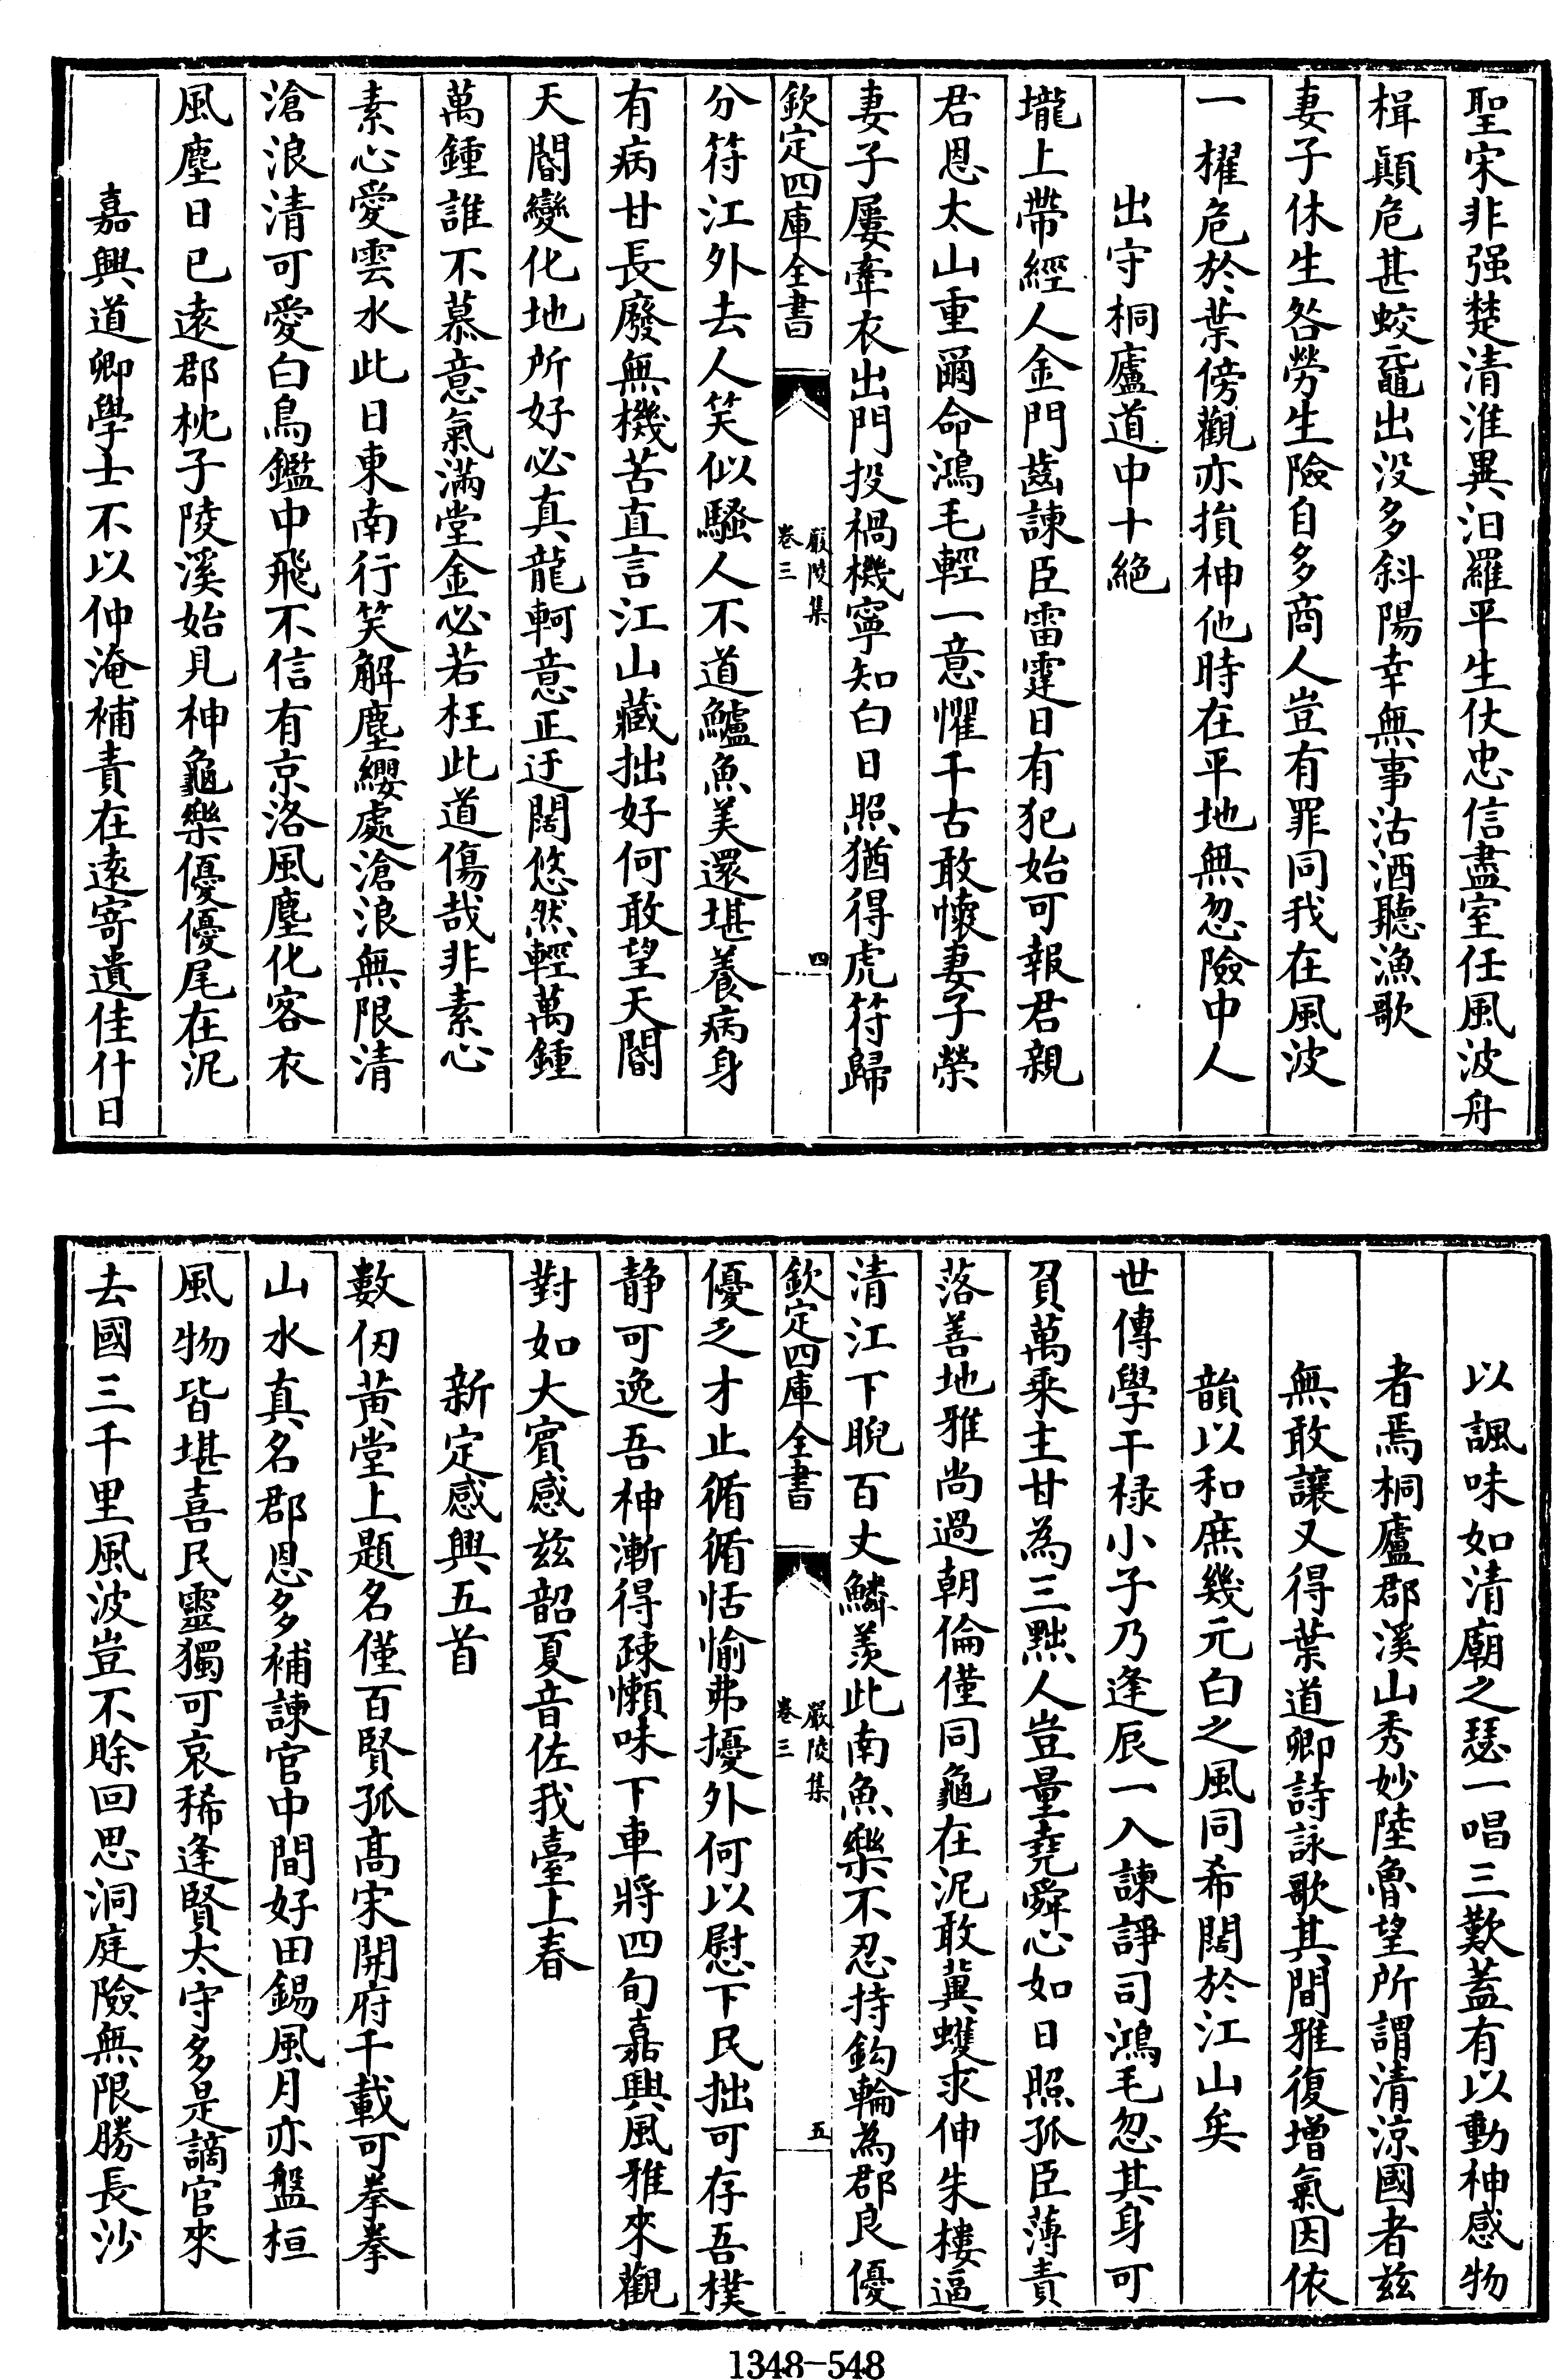 聖宋非强楚清淮異汨羅平生仗忠信盡室任風波舟
楫顛危甚蛟黿出没多斜陽幸無事沽酒聽漁歌
妻子休生咎勞生險自多商人豈有罪同我在風波
一櫂危於葉傍觀亦損神他時在平地無忽險中人
出守桐廬道中十絕
壠上帶經人金門齒諫臣雷霆日有犯始可報君親
君恩太山重爾命鴻毛輕一意懼千古敢懷妻子榮
妻子屢牽衣出門投禍機寧知白日照猶得虎符歸
欽定四庫全書
嚴陵集
卷三
四
分符江外去人笑似騷人不道鱸魚美還堪養病身
有病甘長廢無機苦直言江山藏拙好何敢望天閽
天閽變化地所好必真龍軻意正迂闊悠然輕萬鍾
萬鍾誰不慕意氣滿堂金必若枉此道傷哉非素心
素心愛雲水此日東南行笑解塵纓處滄浪無限清
滄浪清可愛白鳥鑑中飛不信有京洛風塵化客衣
風塵日已遠郡枕子陵溪始見神龜樂優優尾在泥
嘉興道卿學士不以仲淹補責在遠寄遺佳什日
以諷味如清廟之瑟一唱三歎蓋有以動神感物
者焉桐廬郡溪山秀妙陸魯望所謂清凉國者兹
無敢讓又得葉道卿詩詠歌其間雅復增氣因依
韻以和庶幾元白之風同希闊於江山矣
世傳學干禄小子乃逢辰一入諫諍司鴻毛忽其身可
負萬乘主甘為三黜人豈量堯舜心如日照孤臣薄責
落善地雅尚過朝倫僅同龜在泥敢冀蠖求伸朱樓逼
清江下睨百丈鱗羨此南魚樂不忍持鈎輪為郡良優
欽定四庫全書
嚴陵集
卷三
五
優乏才止循循恬愉弗擾外何以慰下民拙可存吾樸
静可逸吾神漸得疎懶味下車將四旬嘉興風雅來觀
對如大賓感兹韶夏音佐我臺上春
新定感興五首
數仞黃堂上題名僅百賢孤高宋開府千載可拳拳
山水真名郡恩多補諫官中間好田錫風月亦盤桓
風物皆堪喜民靈獨可哀稀逢賢太守多是謫官來
去國三千里風波豈不賒回思洞庭險無限勝長沙
1348-548